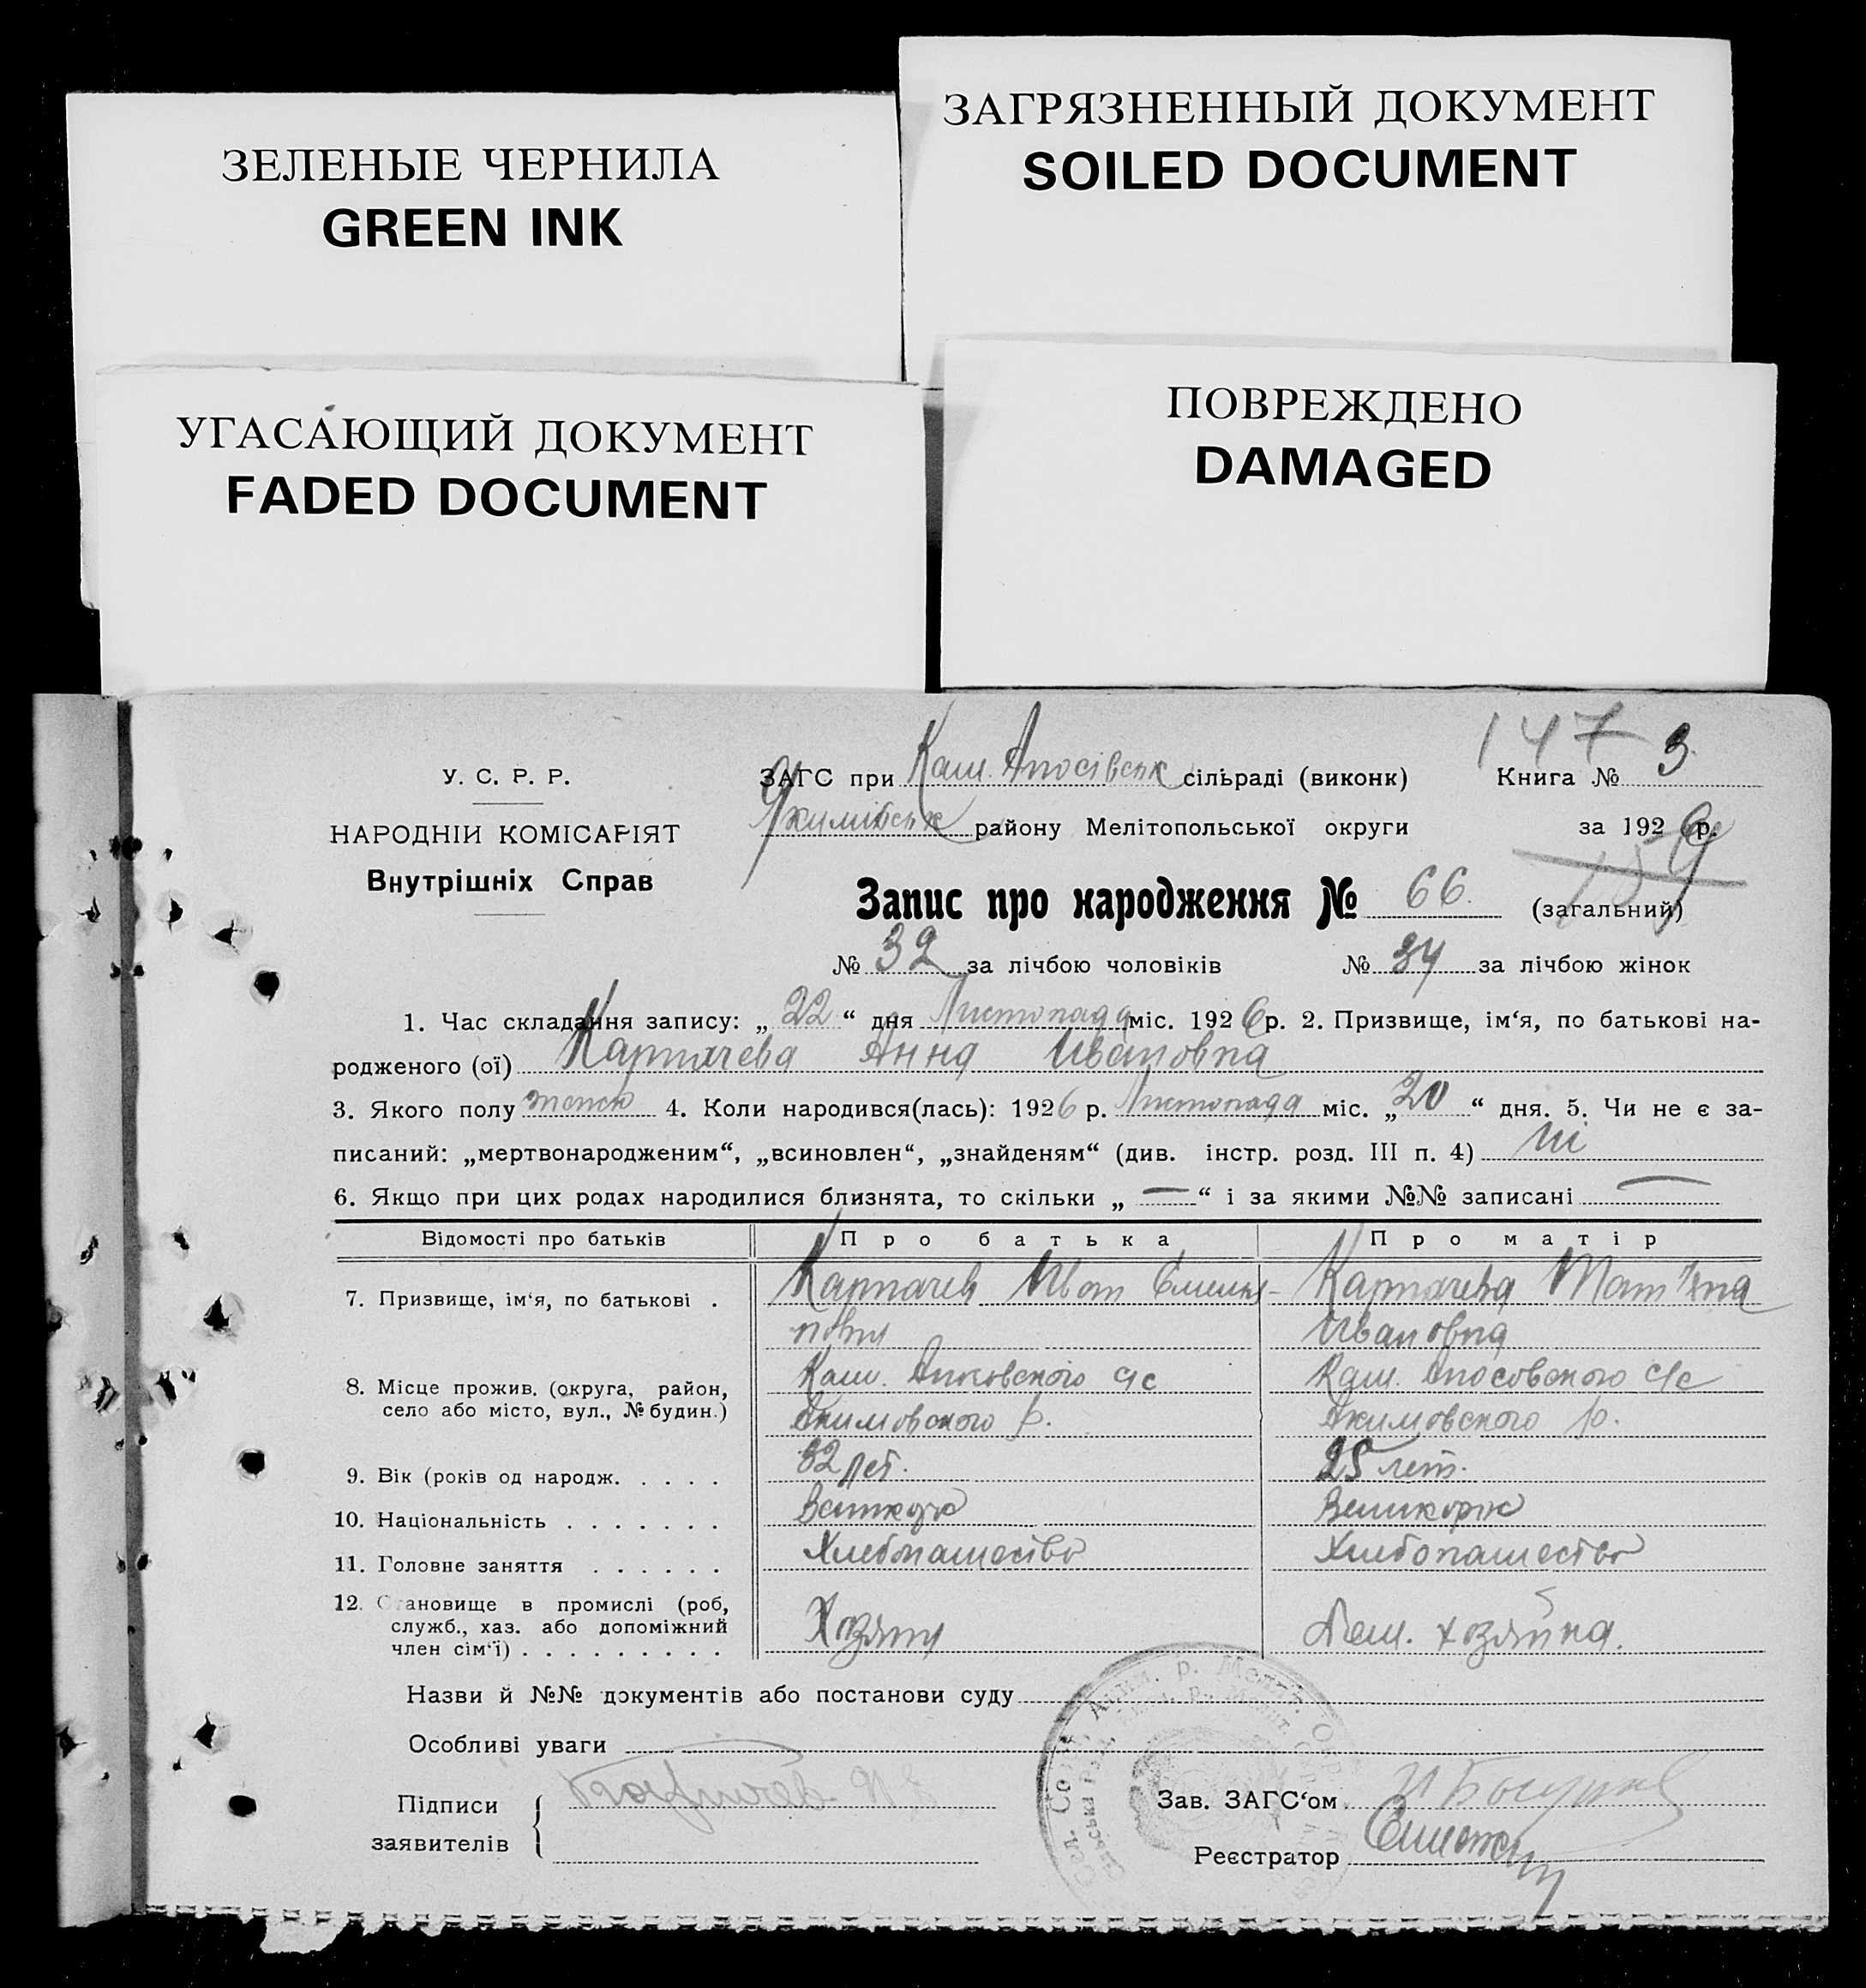 ЗЕЛЕНЫЕ ЧЕРНИЛА
GREEN INK
ЗАГРЯЗНЕННЫЙ ДОКУМЕНТ
SOILED DOCUMENT
УГАСАЮЩИЙ ДОКУМЕНТ
FADED DOCUMENT
ПОВРЕЖДЕНО
DAMAGED
147
У. С. Р. Р.
НАРОДНІИ КОМІСАРІЯТ
Внутрішніх Справ
ЗАГС при Каш. Апосівськ сільраді (виконк) Книга № 3
Якимівськ району Мелітопольської округи за 1926 р.
Запис про народження № 66. (загальний)
№ 32 за лічбою чоловіків № 34 за лічбою жінок
1. Час складання запису: „ 22 “ дня Листопада міс. 1926 р. 2. Призвище, ім‘я, по батькові на-
родженого (ої) Карпачева Анна Ивановна
3. Якого полу женск 4. Коли народився(лась): 1926 р. Листопада міс. „ 20 “ дня. 5. Чи не є за-
писаний: „мертвонародженим“, „всиновлен“, „знайденям“ (див. інстр. розд. III п. 4) ні
6. Якщо при цих родах народилися близнята, то скільки „ — “ і за якими №№ записані —
Відомості про батьків Про батька Про матір
7. Призвище, ім‘я, по батькові . Карпачев Иван Емелья- Карпачева Татяна
нович Ивановна
8. Місце прожив. (округа, район, село або місто, вул., № будин.) Каш. с/с Каш. Апосовского с/с
Акимовского р. Акимовского р.
9. Вік (років од народж. . . . . 32 лет. 25 лет.
10. Національність . . . . . . . Великорос
11. Головне заняття . . . . . . Хлебопашество Хлебопашество
12. Становище в промислі (роб, служб., хаз. або допоміжний член сім‘ї) . . . . . . . . . Хозяин Пом. хозяина.
Назви й №№ документів або постанови суду
Особливі уваги
Підписи заявителів Карпачев И Е
Зав. ЗАГС‘ом
Реєстратор